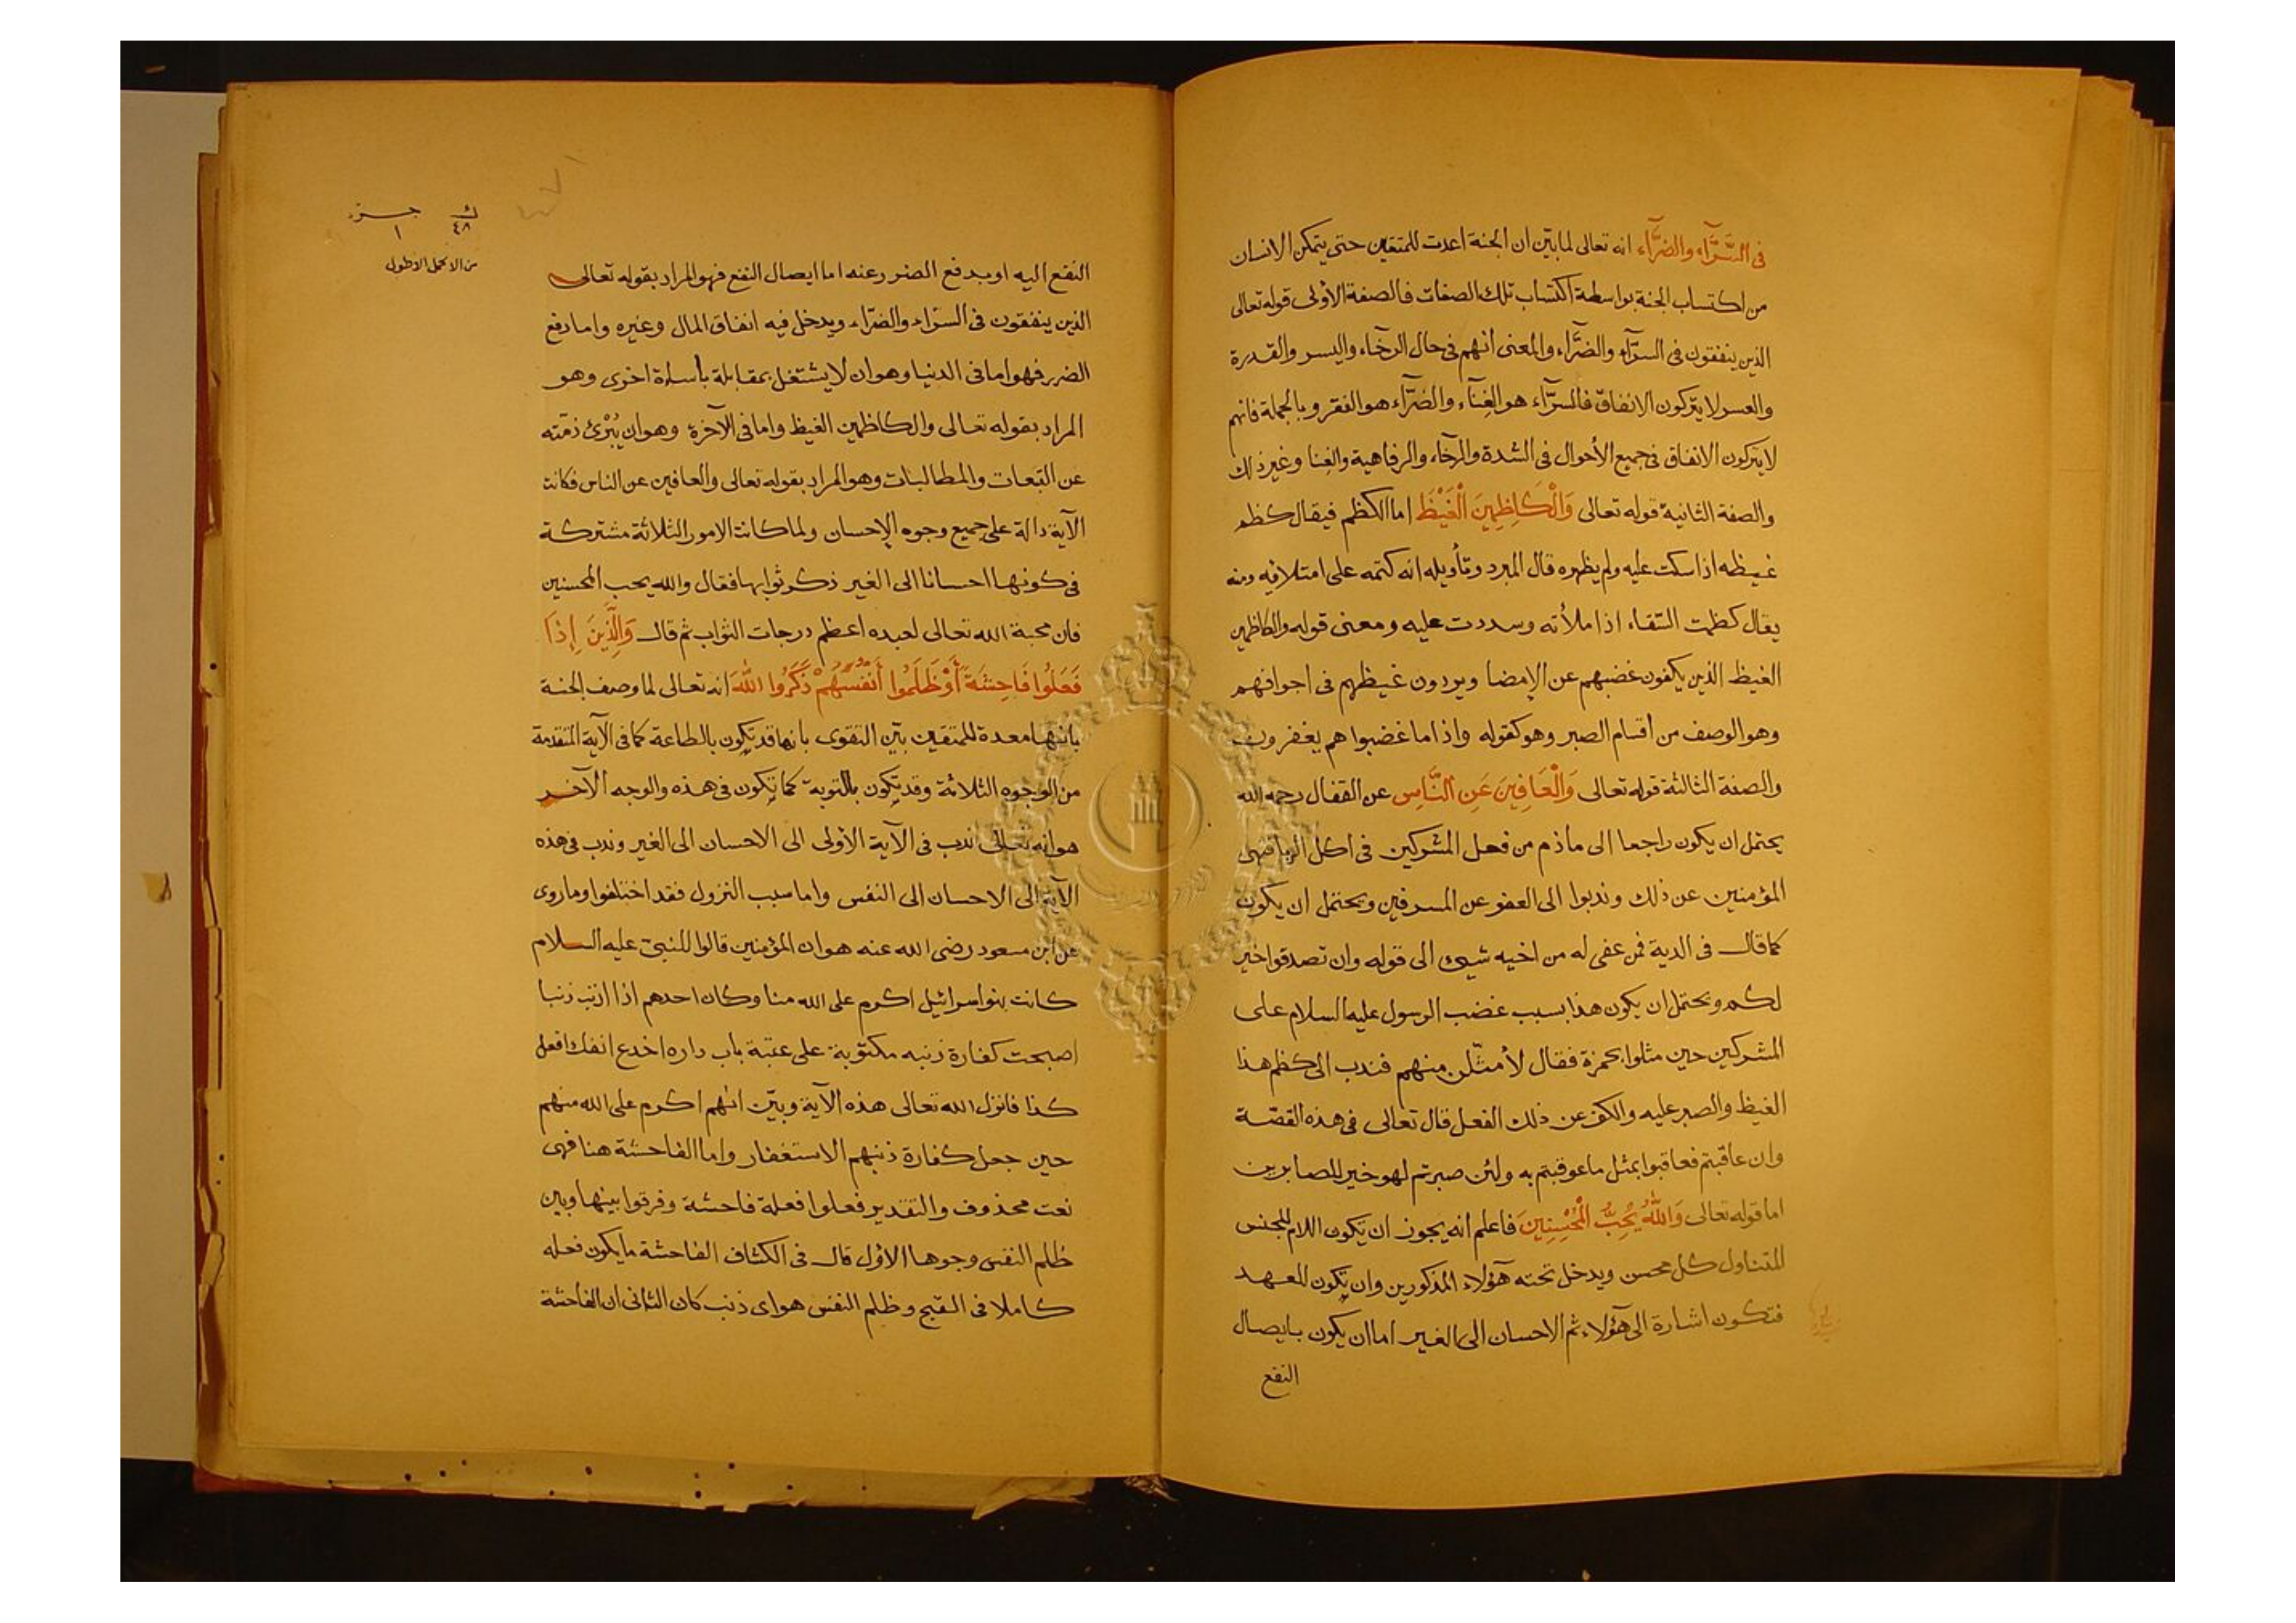 فى السَّرَّآء والضرَّآء انه تعالى لما بيّن ان الجنة اعدت للمتقين حتى يتمكن الانسان
من اكتساب الجنة بواسطة اكتساب تلك الصفات فالصفة الأولى قوله تعالى
الذين ينفقون فى السرّآء والضرَّآء والمعنى أنهم فى حال الرخآء واليسر والقدرة
والعسر لا يتركون الانفاق فالسرّآء هو الغِنآء والضرَّآء هو الفقر وبالجملة فانهم
لا يتركون الانفاق فى جميع الأحوال فى الشدة والرخآء والرفاهية والغنا وغير ذلك
والصفة الثانية قوله تعالى وَالْكَاظِمِينَ الْغَيْظَ اما الكظم فيقال كظم
غيظه اذا سكت عليه ولم يظهره قال المبرد وتأويله انه كتمه على امتلائه ومنه
يقال كظمت السّقاء اذا ملأته وسددت عليه ومعنى قوله والكاظمين
الغيظ الذين يكفون غضبهم عن الإمضا ويردون غيظهم فى اجوافهم
وهو الوصف من أقسام الصبر وهو كقوله واذا ما غضبوا هم يغفرون
والصفة الثالثة قوله تعالى وَالْعَافِينَ عَنِ النَّاسِ عن القفال رحمه الله
يحتمل ان يكون راجعا الى ما ذم من فعل المشركين فى اكل الربا فنهى
المؤمنين عن ذلك وندبوا الى العفو عن المسرفين ويحتمل ان يكون
كما قال فى الدية فمن عفى له من اخيه شيئ الى قوله وان تصدقوا خير
لكم ويحتمل ان يكون هذا بسبب غضب الرسول عليه السلام على
المشركين حين مثلوا بحمزة فقال لأمثّلن منهم فندب الى كظم هذا
الغيظ والصبر عليه والكف عن ذلك الفعل قال تعالى فى هذه القصّة
وان عاقبتم فعاقبوا بمثل ما عوقبتم به ولئن صبرتم لهو خير للصابرين
اما قوله تعالى وَاللهُ يُحِبُّ الْمُحْسِنِينَ فاعلم انه يجوز ان تكون اللام للجنس
المتناول كل محسن ويدخل تحته هؤلاء المذكورين وان تكون للعهد
فتكون اشارة الى هؤلاء ثم الاحسان الى الغير اما ان يكون بايصال
النفع
ك جزء
٤٨ ١
من الاكمل الاطول
النفع اليه او بدفع الضرر عنه اما ايصال النفع فهو المراد بقوله تعالى
الذين ينفقون فى السرّاء والضرّاء ويدخل فيه انفاق المال وغيره واما دفع
الضرر فهو اما فى الدنيا وهو ان لا يشتغل بمقابلة باساءة اخرى وهو
المراد بقوله تعالى والكاظمين الغيظ واما فى الآخرة وهو ان يُبْرِئ ذمّته
عن التبعات والمطالبات وهو المراد بقوله تعالى والعافين عن الناس فكانت
الآية دالة على جميع وجوه الإحسان ولما كانت الامور الثلاثة مشتركة
فى كونها احسانا الى الغير ذكر ثوابها فقال والله يحب المحسنين
فان محبة الله تعالى لعبده اعظم درجات الثواب ثم قال وَالَّذِينَ إِذَا
فَعَلُوا فَاحِشَةً أَوْ ظَلَمُوا أَنْفُسَهُمْ ذَكَرُوا اللهَ انه تعالى لما وصف الجنة
بانها معدة للمتقين بيّن التقوى بانها قد تكون بالطاعة كما فى الآية المتقدمة
من الوجوه الثلاثة وقد تكون بالتوبة كما تكون فى هذه والوجه الآخر
هو انه تعالى ندب فى الآية الأولى الى الاحسان الى الغير وندب فى هذه
الآية الى الاحسان الى النفس واما سبب النزول فقد اختلفوا وما روى
عن ابن مسعود رضى الله عنه هو ان المؤمنين قالوا للنبىّ عليه السلام
كانت بنو اسرائيل اكرم على الله منا وكان احدهم اذا اذنب ذنبا
اصبحت كفارة ذنبه مكتوبة على عتبة باب داره اخدع انفك افعل
كذا فانزل الله تعالى هذه الآية وبيّن انهم اكرم على الله منهم
حين جعل كفارة ذنبهم الاستغفار واما الفاحشة هنا فهى
نعت محذوف والتقدير فعلوا فعلة فاحشة وفرقوا بينها وبين
ظلم النفس وجوها الأول قال فى الكشاف الفاحشة ما يكون فعله
كاملا فى القبح وظلم النفس هو اى ذنب كان الثانى ان الفاحشة